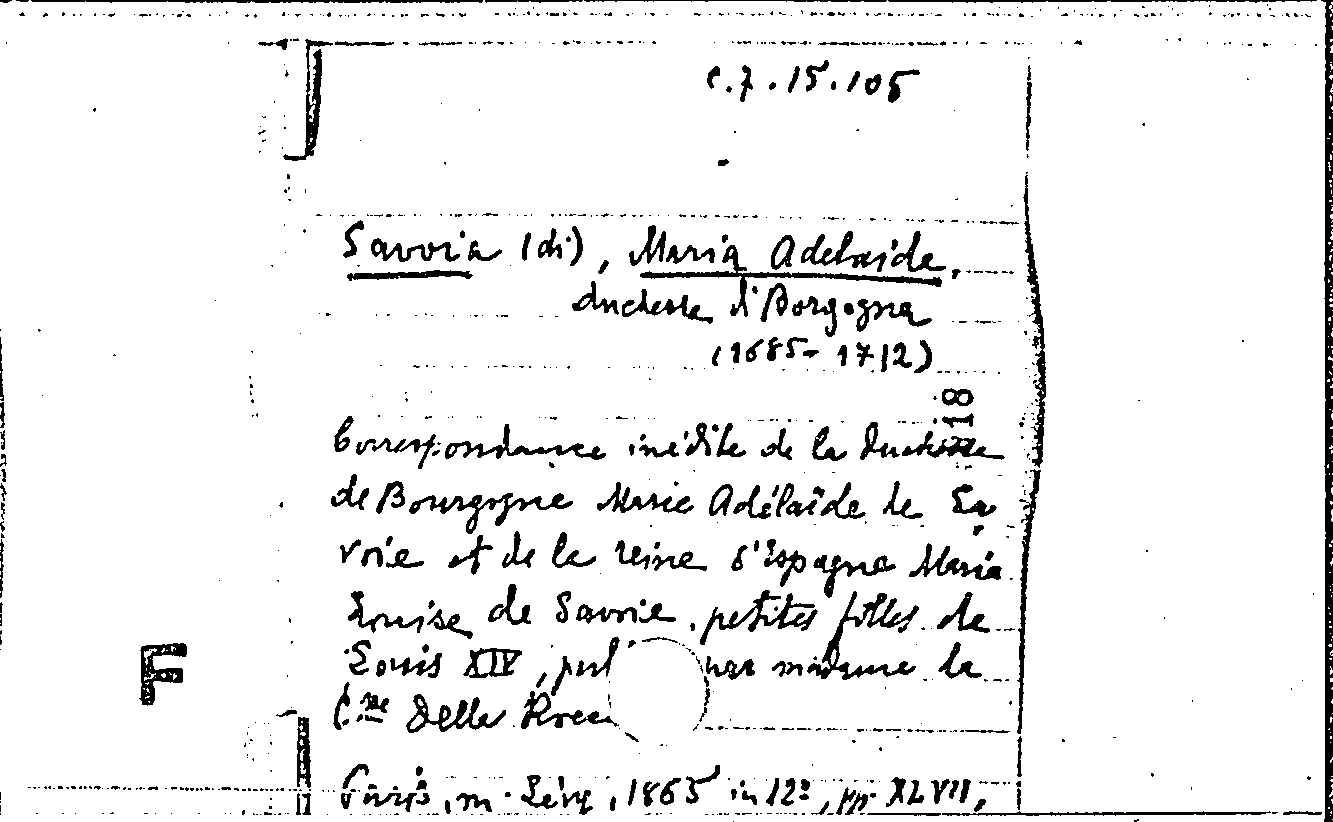 C.7.15.105
Savoia (di), Maria Adelaide,
duchessa d'Borgogna
(1685-1712)
18
Correspondance inédite de la Duchesse
de Bourgogne Marie Adélaïde de Sa
voie et de la reine d'Espagne Maria
Louise de Savoie, petites filles de
Louis XIV, madame la
C.sse Della
F
Paris, M. Lévy, 1865 in 12º, pp. XLVII,